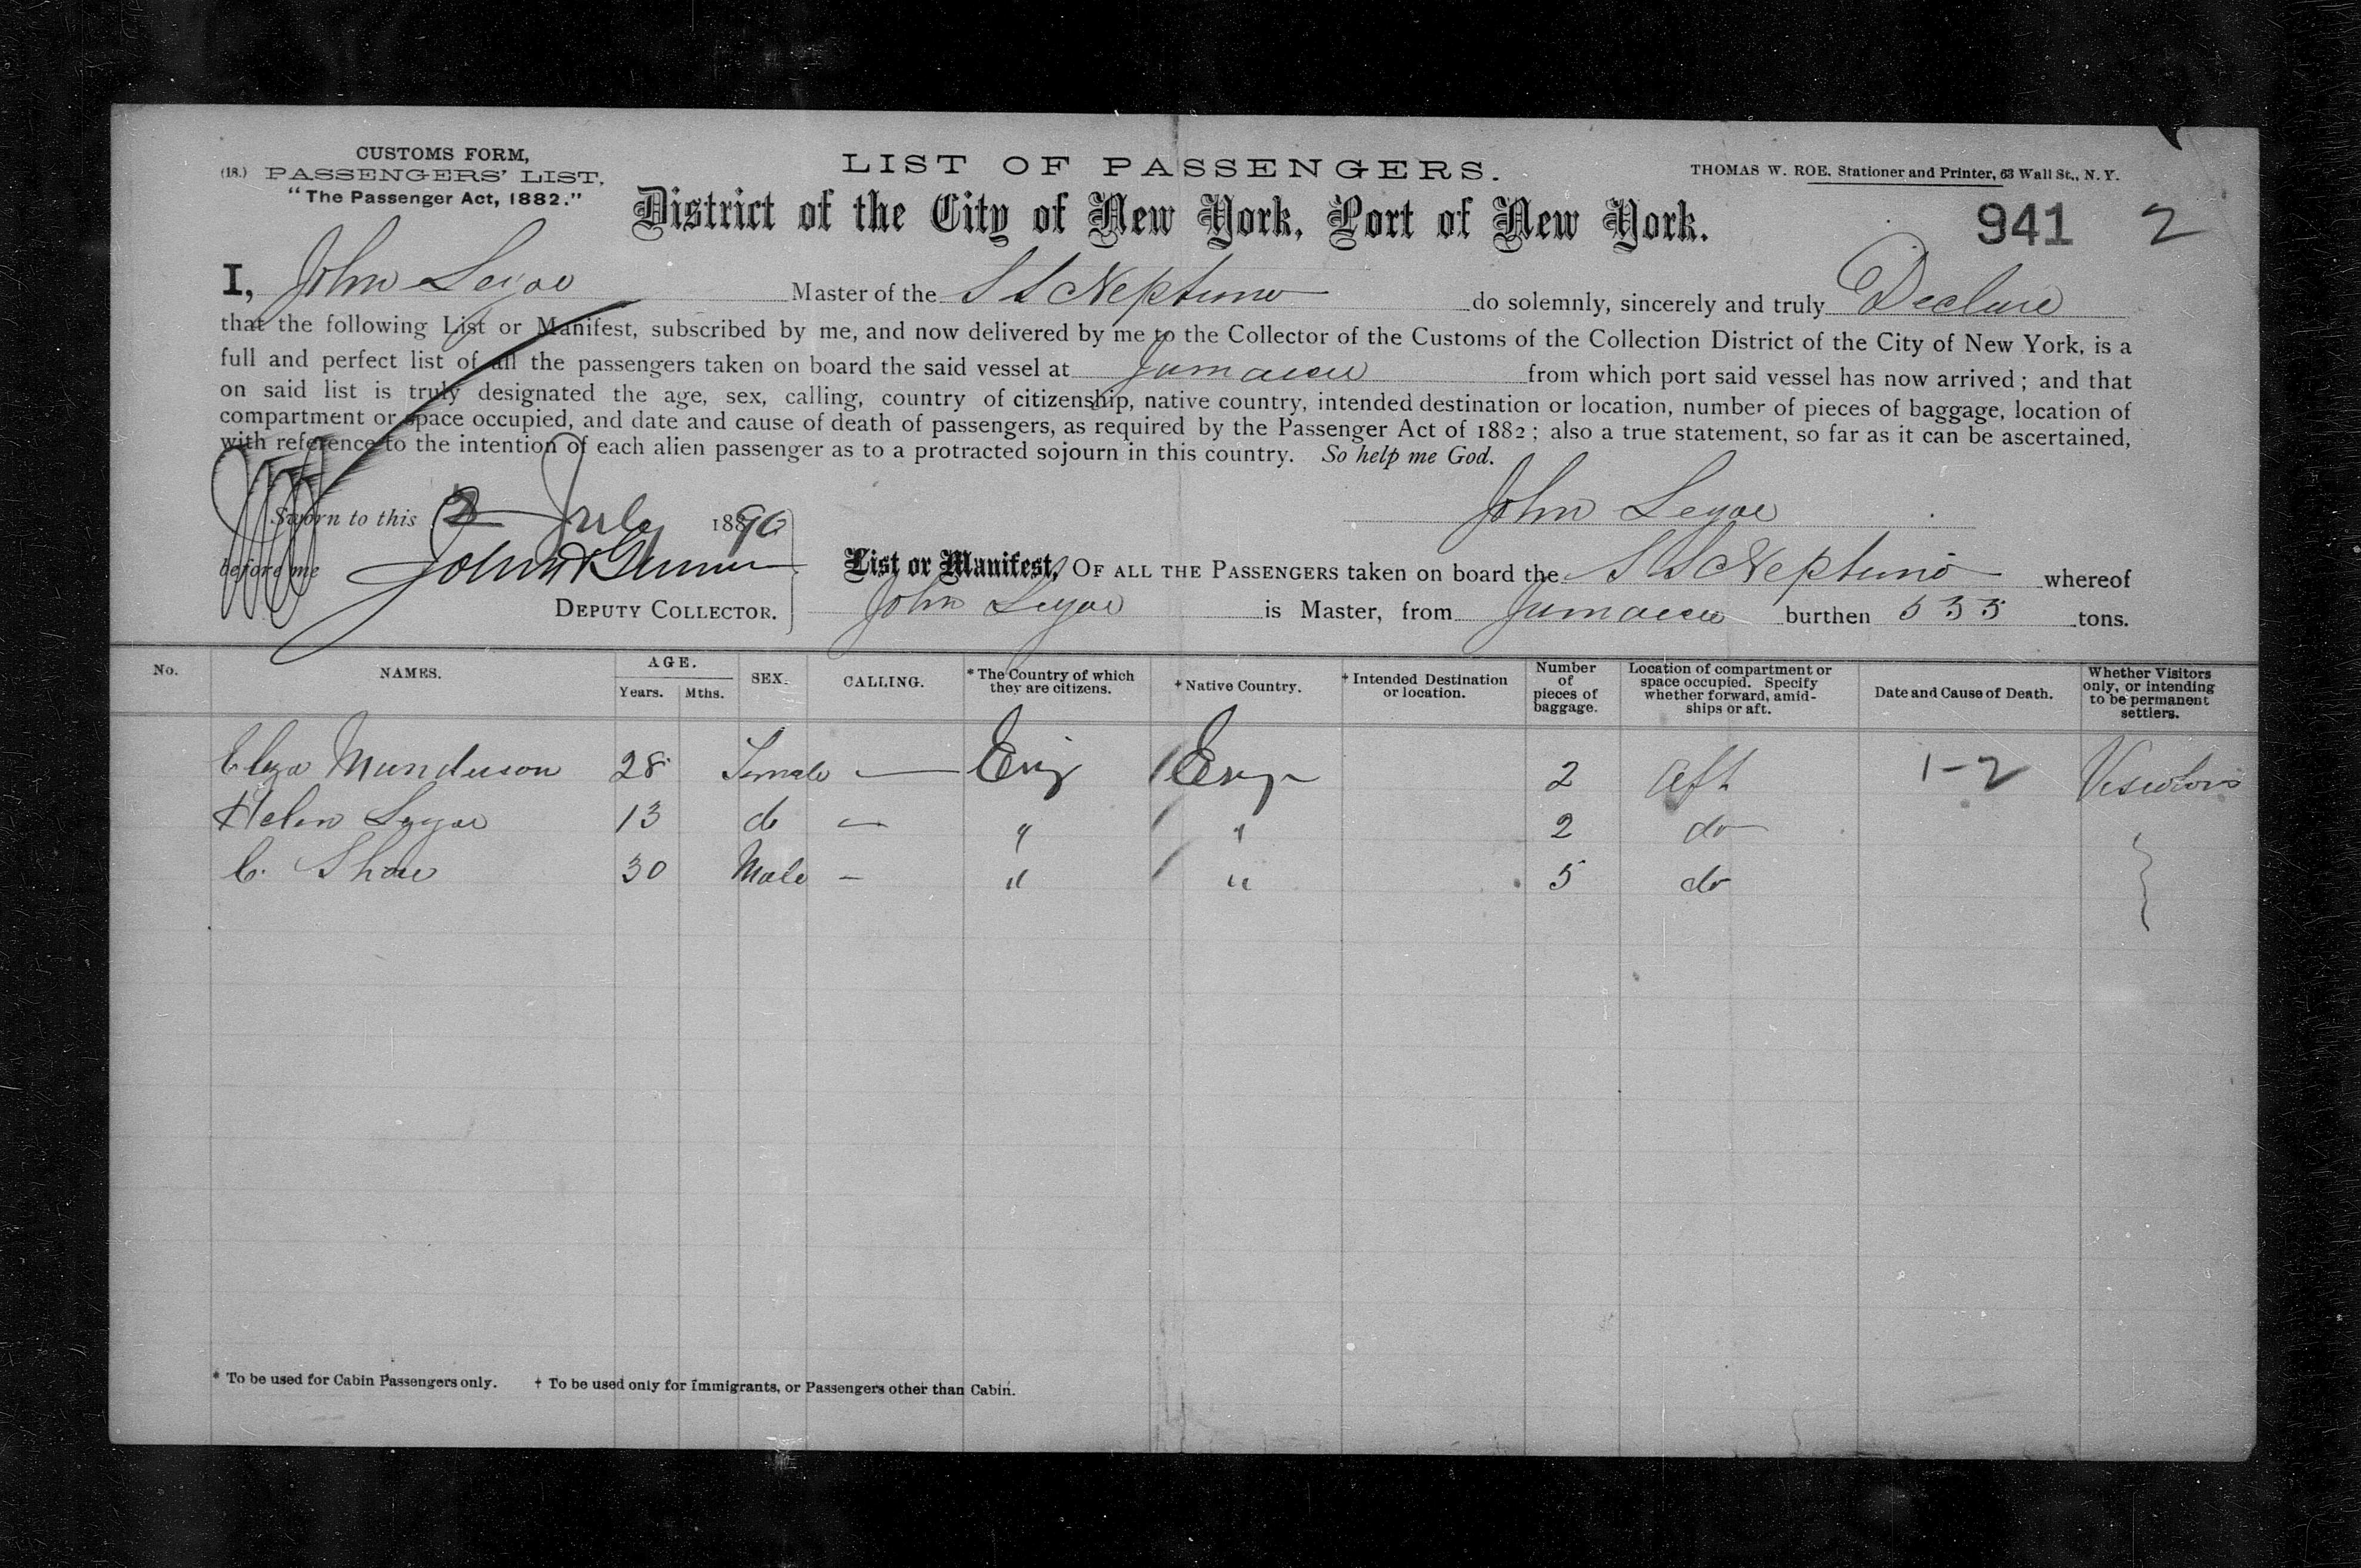 CUSTOMS FORM,
(18.) PASSENGERS' LIST,
"The Passenger Act, 1882."
LIST OF PASSENGERS.
THOMAS W. ROE, Stationer and Printer, 63 Wall St., N. Y.
District of the City of New York, Port of New York.
941 2
I, John Master of the S S Neptuno do solemnly, sincerely and truly Declare
that the following List or Manifest, subscribed by me, and now delivered by me to the Collector of the Customs of the Collection District of the City of New York, is a
full and perfect list of all the passengers taken on board the said vessel at Jamaica from which port said vessel has now arrived; and that
on said list is truly designated the age, sex, calling, country of citizenship, native country, intended destination or location, number of pieces of baggage, location of
compartment or space occupied, and date and cause of death of passengers, as required by the Passenger Act of 1882; also a true statement, so far as it can be ascertained,
with reference to the intention of each alien passenger as to a protracted sojourn in this country. So help me God.
John
Sworn to this 2 July 1890
before me John
DEPUTY COLLECTOR.
List or Manifest, OF ALL THE PASSENGERS taken on board the S S Neptuno whereof
John is Master, from Jamaica burthen 533 tons.
No. NAMES. AGE. Years. Mths. SEX. CALLING. * The Country of which they are citizens. † Native Country. † Intended Destination or location. Number of pieces of baggage. Location of compartment or space occupied. Specify whether forward, amidships or aft. Date and Cause of Death. Whether Visitors only, or intending to be permanent settlers.
Eliza Munderson 28 Female — Eng Eng 2 Aft 1-2 Visitors
Helen 13 do — " " 2 do
C. Shaw 30 Male — " " 5 do
* To be used for Cabin Passengers only. † To be used only for Immigrants, or Passengers other than Cabin.